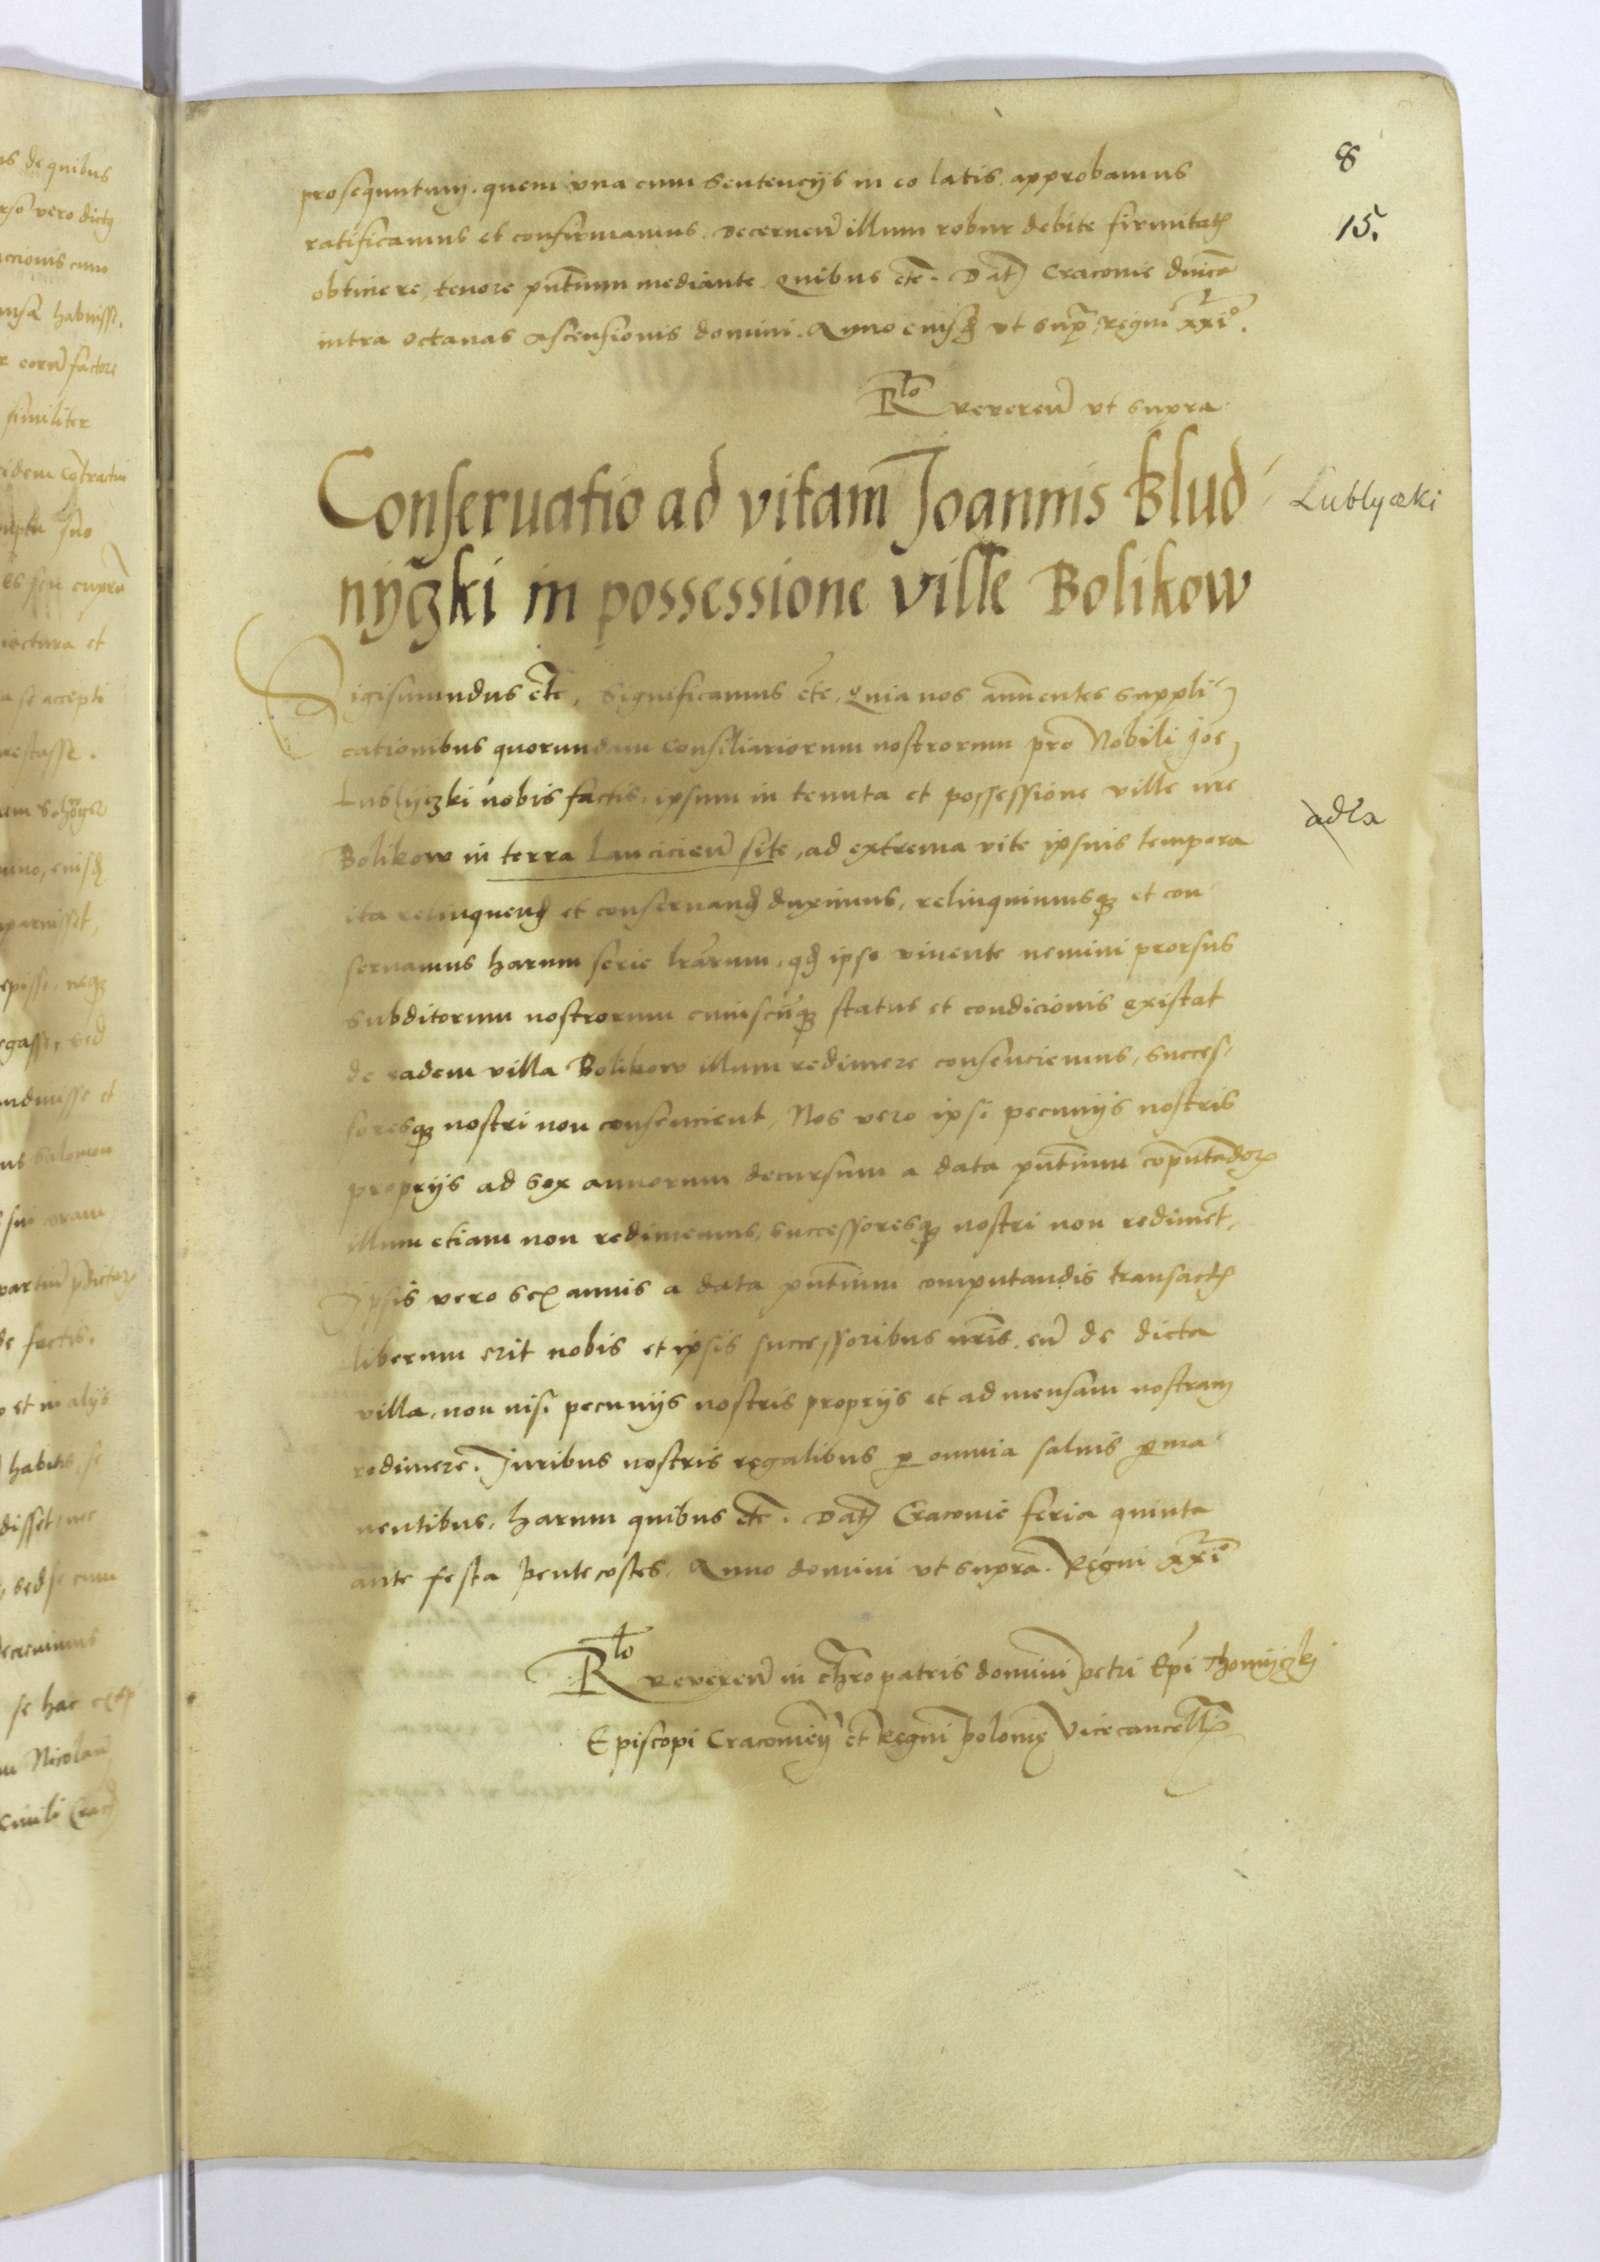 8
15.
prosequuntur, quem vna cum Sentencijs in eo latis, approbamus
ratificamus et confirmamus. Decernen̄ illum robur debite firmitatꝭ
obtinere, tenore pn̄tium mediante. Quibus etc̄. Datꝭ Cracouie dn̄ica
intra octauas Ascensionis domini. Anno eiusdꝫ vt supra, regni xxi°.
Rlo Reueren̄ vt supra
Conseruatio ad vitam Joannis Klud
nijczki in possessione ville Bolikow
Lublyczki
Sigismundus etc̄, Significamus etc̄, Quia nos annuentes suppli
cationibus quorundam Consiliariorum nostrorum pro Nobili Joe
Lublijczki nobis factis, ipsum in tenuta et possessione ville nr̄e
Bolikow in terra Lancicien̄ site, ad extrema vite ipsius tempora
ita relinquend̄ et conseruand̄ duximus, relinquimusqꝫ et con
seruamus harum serie lr̄arum, qd̄ ipso viuente nemini prorsus
subditorum nostrorum cuiuscūqꝫ status et condicionis existat
de eadem villa Bolikow illum redimere consenciemus, succes
soresqꝫ nostri non consencient, Nos vero ipsi pecunijs nostris
proprijs ad sex annorum decursum a data pn̄tium computandoꝝ
illum etiam non redimemus, successoresqꝫ nostri non redimēt,
Ipsis vero sex annis a data pn̄tium computandis transactꝭ
liberum erit nobis et ipsis successoribus nr̄is eū de dicta
villa, non nisi pecunijs nostris proprijs et ad mensam nostram
redimere. Juribus nostris regalibus ꝑ omnia saluis ꝑma
nentibus, harum quibus etc̄. Datꝭ Cracouie feria quinta
ante festa Pentecostes. Anno domini vt supra. Regni xxi°
Rlo Reueren̄ in chr̄o patris domini Petri Ep̄i Thomijczkj
Episcopi Cracouien̄ et Regni Polonię Vicecancellꝝ